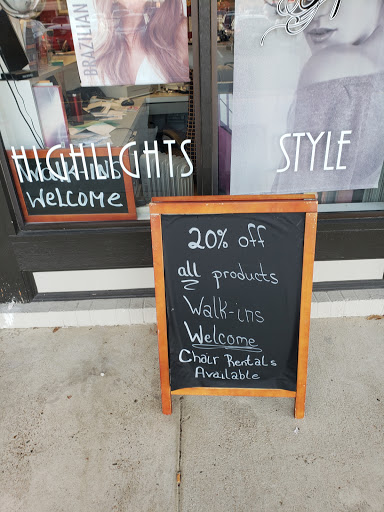 BRAZILIAN
HIGHLIGHTS
STYLE
Walk-ins
Welcome
20% off
all products
Walk-ins
Welcome
Chair Rentals
Available